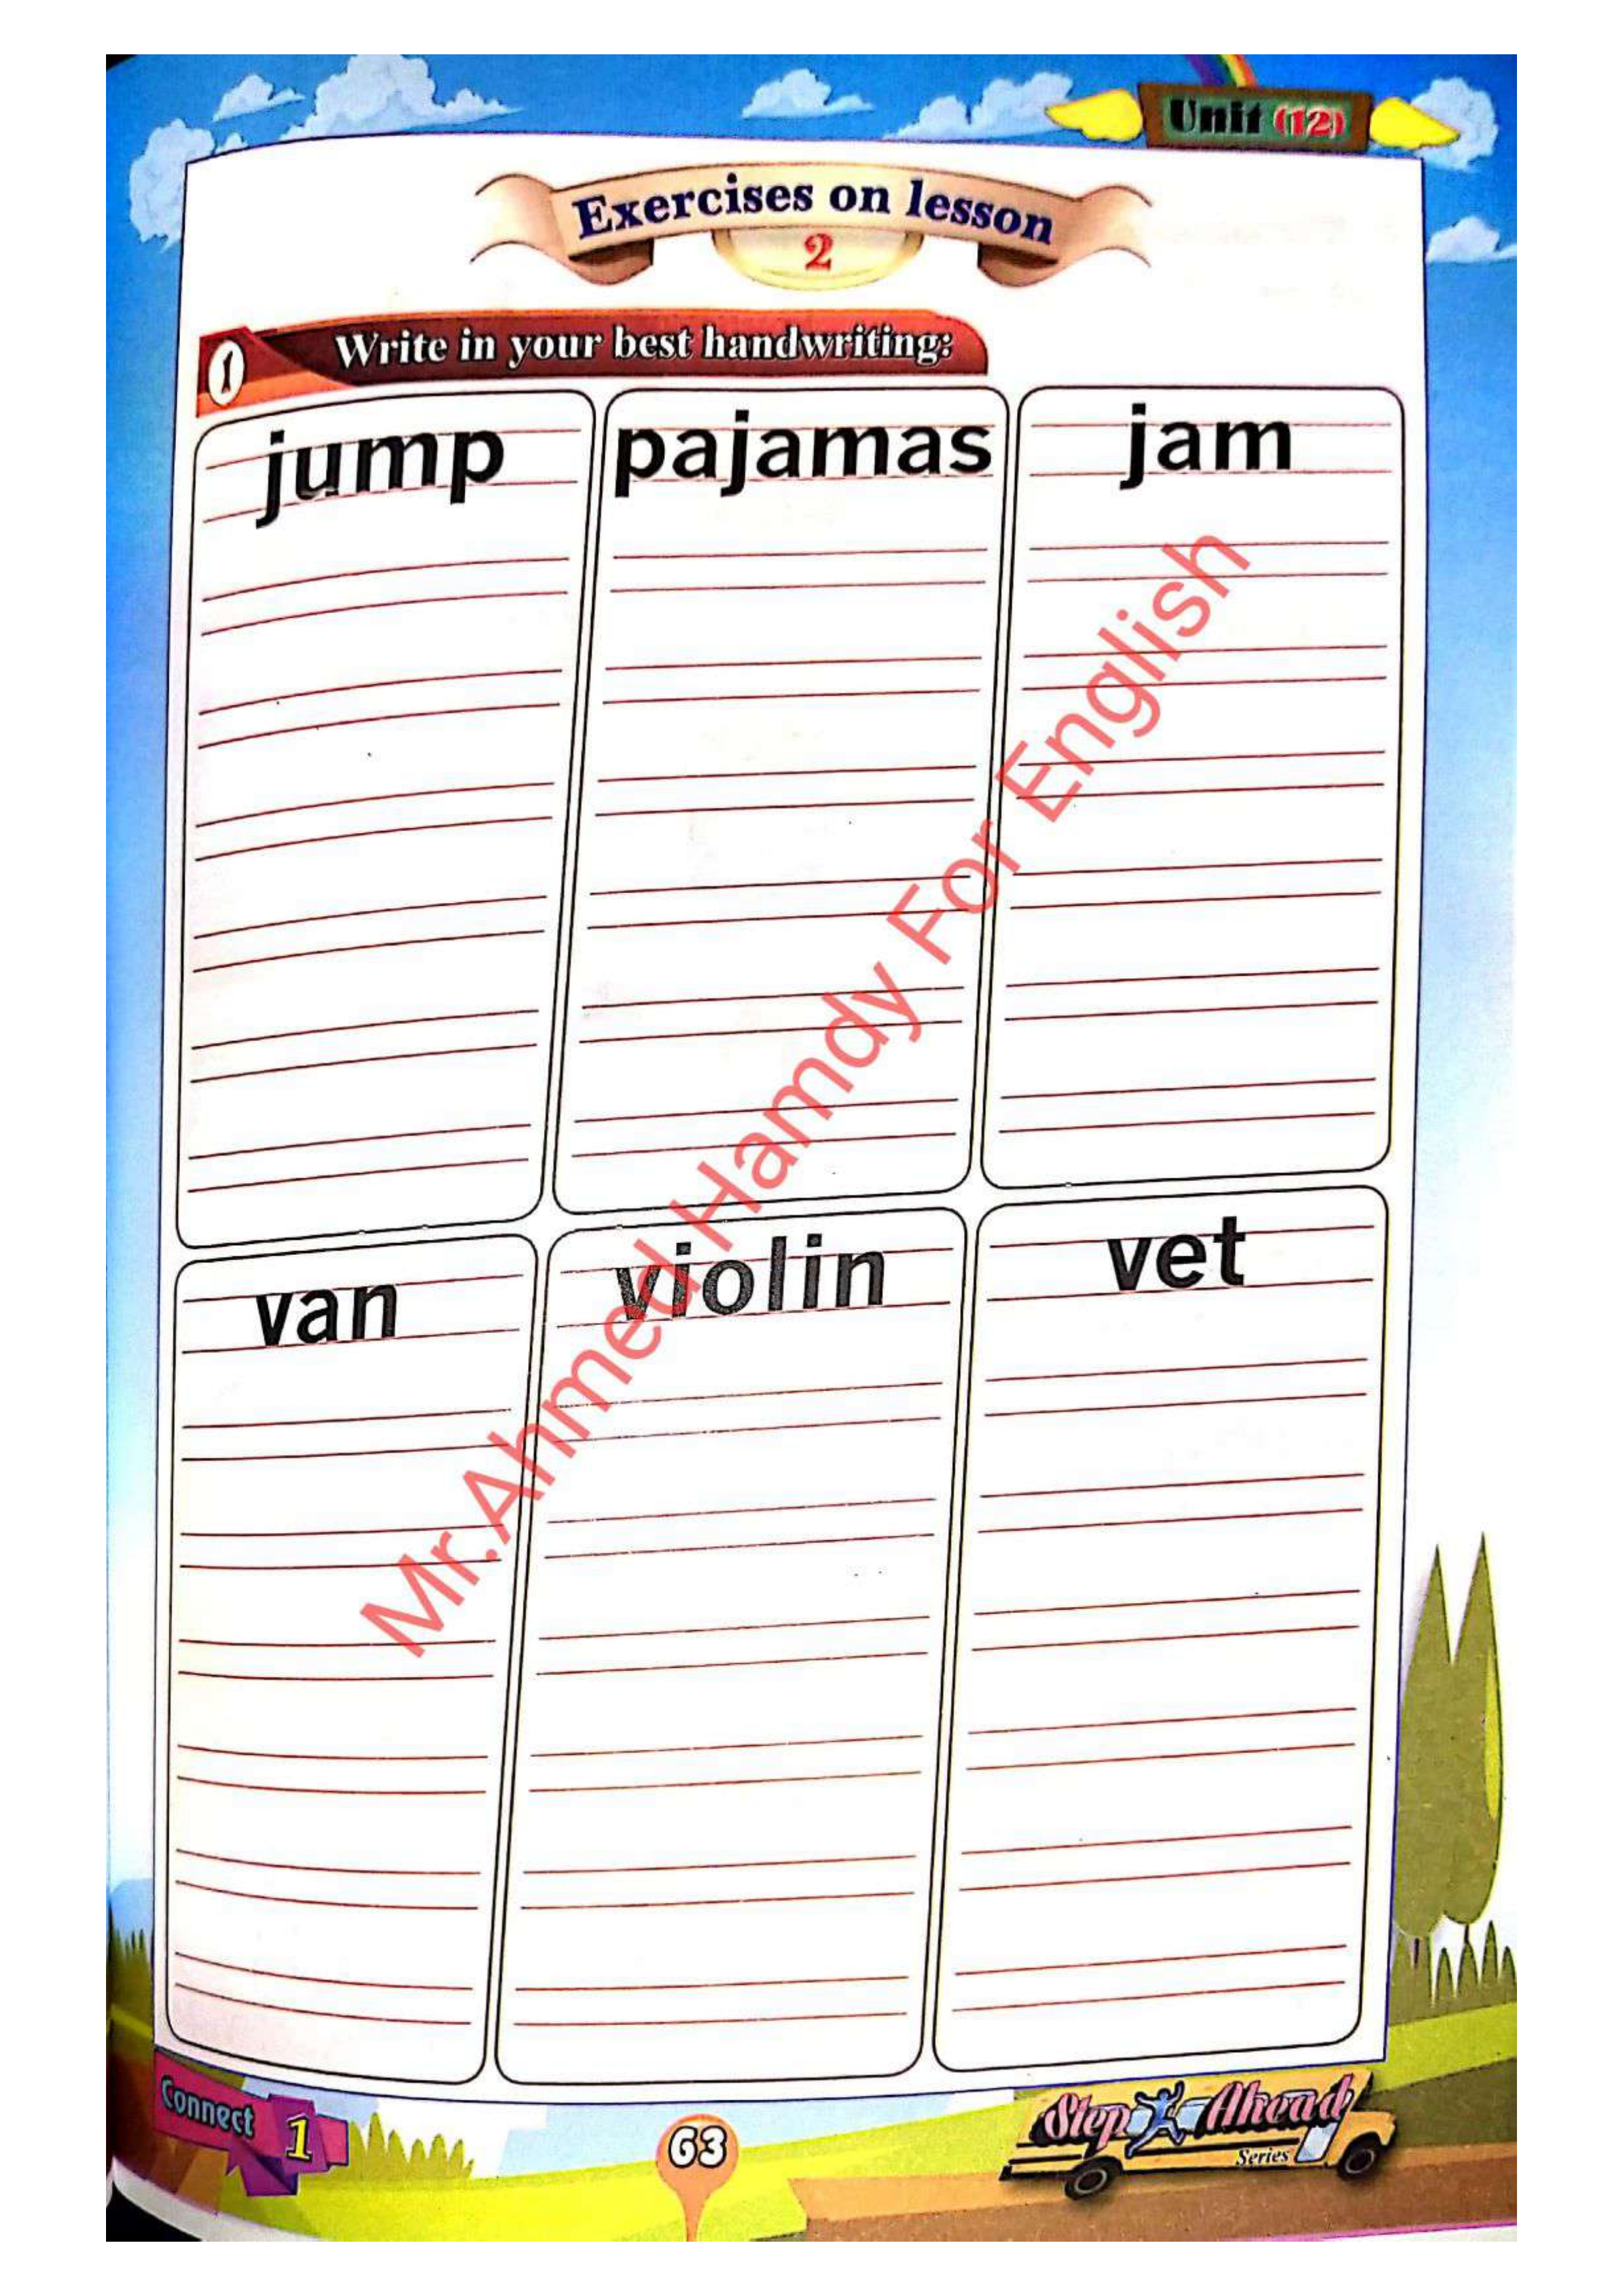 Unit (12)
Exercises on lesson
2
1 Write in your best handwriting:
jump pajamas jam
van violin vet
Mr.Ahmed Hamdy For English
Connect 1
63
Step Ahead
Series